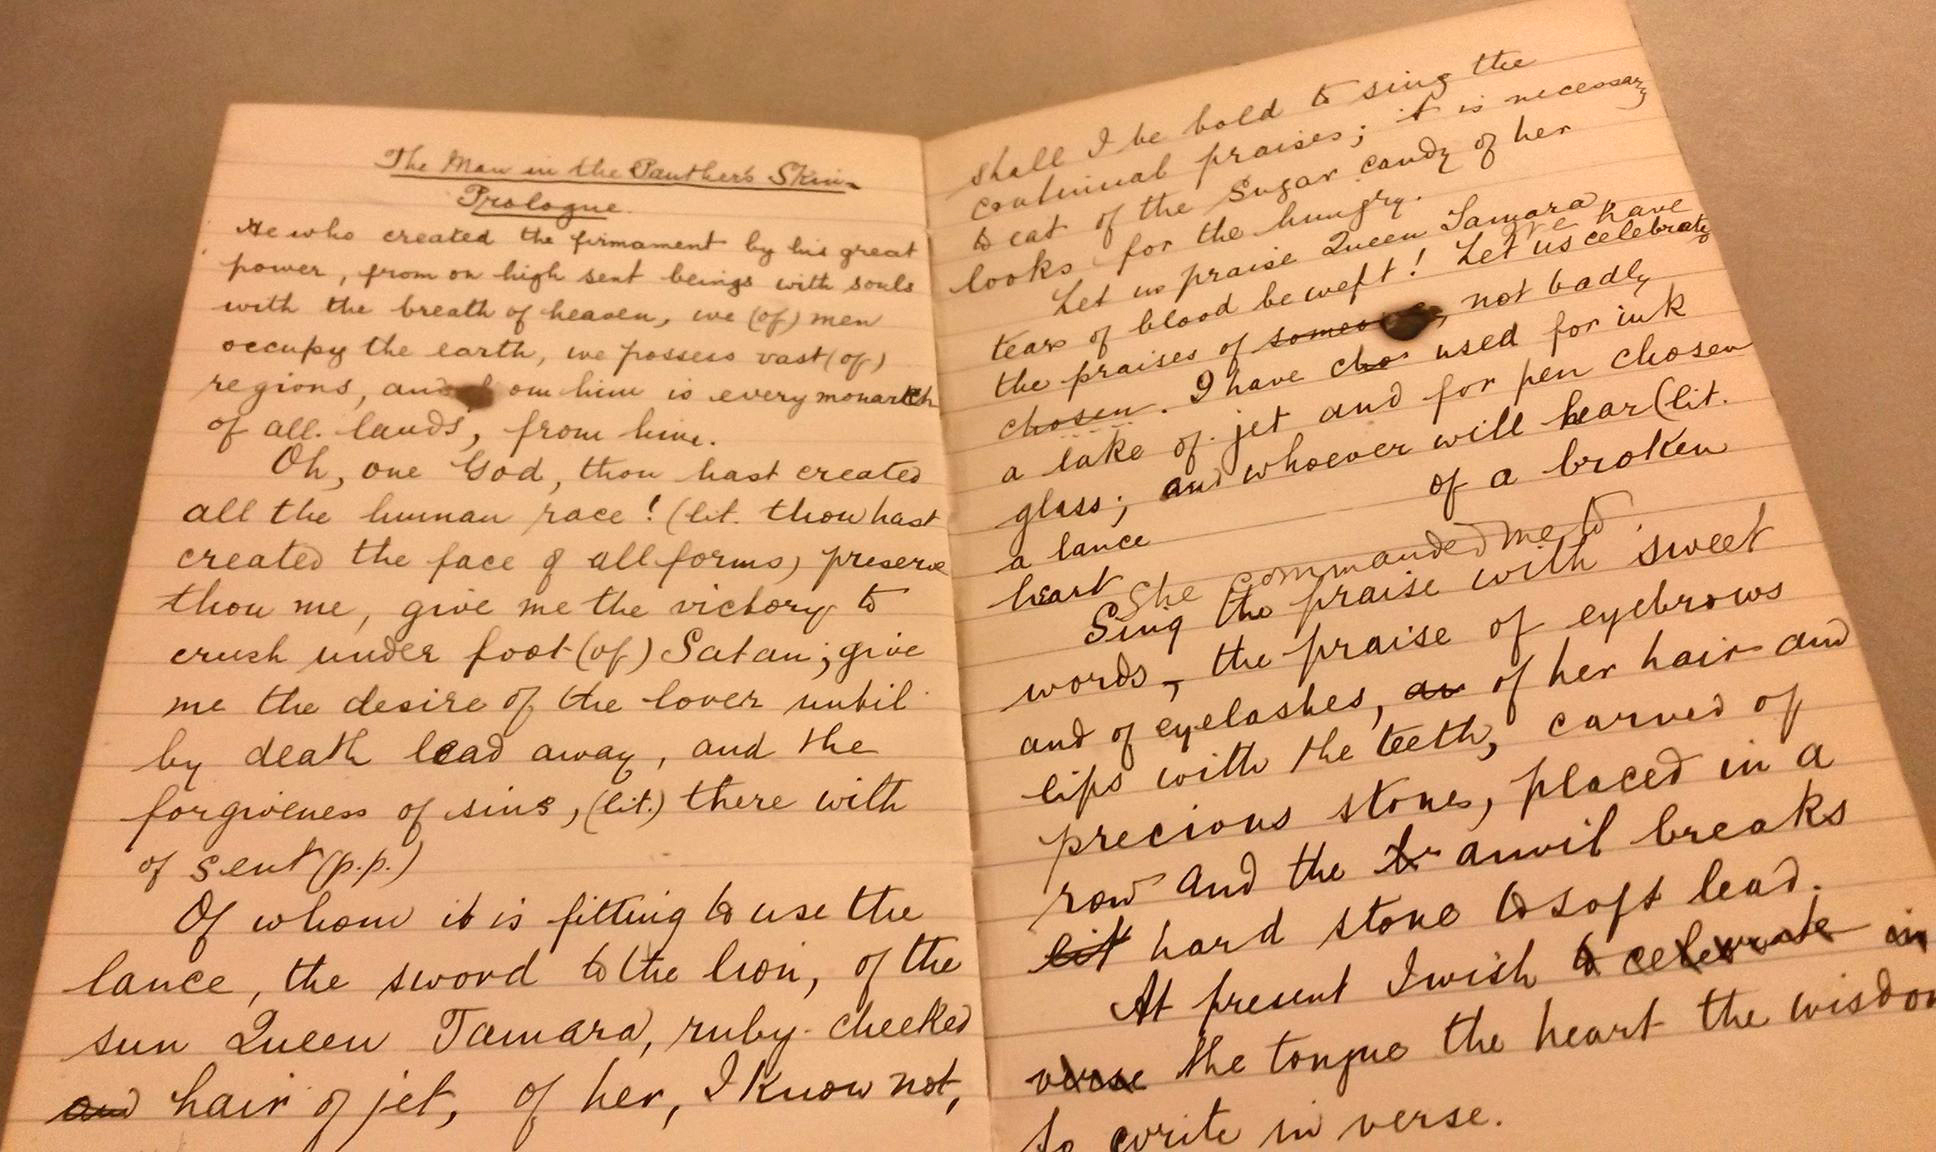 The Man in the Panther's Skin.
Prologue.
He who created the firmament by his great
power, from on high sent beings with souls
with the breath of heaven, we (of) men
occupy the earth, we possess vast (of)
regions, and him is every monarch
of all lands, from him.
Oh, one God, thou hast created
all the human race! (lit. thou hast
created the face of all forms) preserve
thou me, give me the victory to
crush under foot (of) Satan; give
me the desire of the lover until
by death lead away, and the
forgiveness of sins, (lit.) there with
of sent (p.p.)
Of whom it is fitting to use the
lance, the sword to the lion, of the
sun Queen Tamara, ruby-cheeked
and hair of jet, of her, I know not,
shall I be bold to sing the
continual praises; it is necessary
to eat of the Sugar candy of her
looks for the hungry.
Let us praise Queen Tamara, we have
tears of blood bewept! Let us celebrate
the praises of , not badly
chosen. I have cho used for ink
a lake of jet and for pen chosen
glass; and whoever will hear (lit.
a lance of a broken
heart She commanded me to
Sing the praise with sweet
words, the praise of eyebrows
and of eyelashes, an of her hair and
lips with the teeth, carved of
precious stones, placed in a
row and the anvil breaks
lit hard stone to soft lead.
At present I wish to celebrate in
verse the tongue the heart the wisdom
to write in verse.